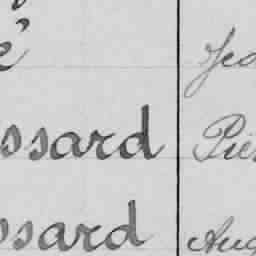 é Jea
ssard Pier
ssard Aug